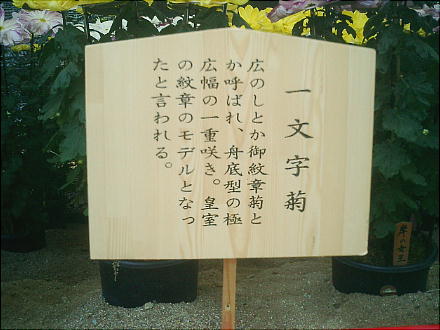 一文字菊
広のしとか御紋章菊と
か呼ばれ、舟底型の極
広幅の一重咲き。皇室
の紋章のモデルとなっ
たと言われる。
岸の女王